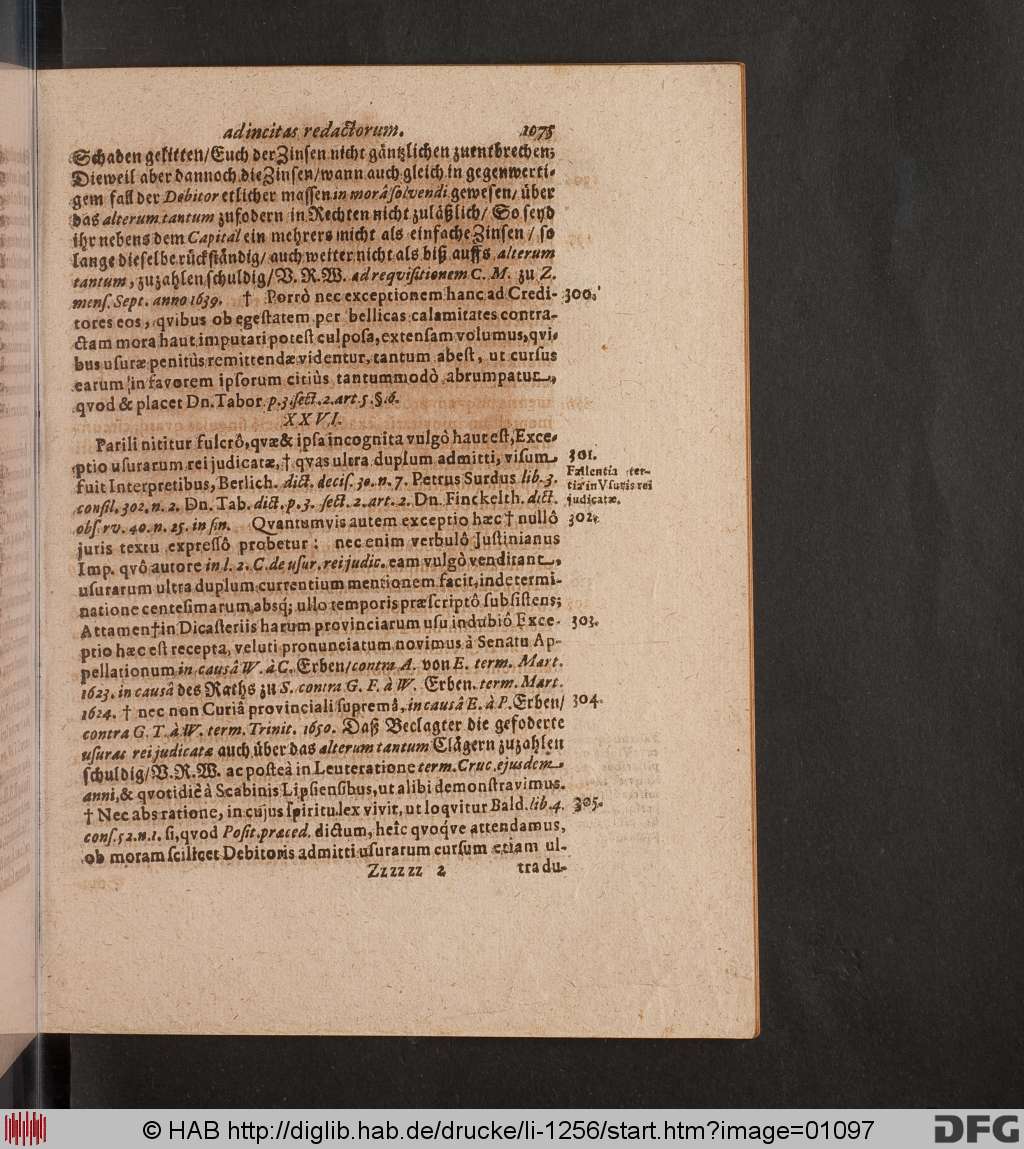 ad incitas redactorum. 1075
Schaden gelitten/ Euch der Zinsen nicht gäntzlichen zuentbrechen;
Dieweil aber dannoch die Zinsen/ wann auch gleich in gegenwerti-
gem fall der Debitor etlicher massen in morâ solvendi gewesen/ über
das alterum tantum zufodern in Rechten nicht zuläßlich/ So seyd
ihr nebens dem Capital ein mehrers nicht als einfache Zinsen / so
lange dieselbe rückständig/ auch weiter nicht als biß auffs alterum
tantum, zuzahlen schuldig/ V. R. W. ad reqvisitionem C. M. zu Z.
mens. Sept. anno 1639. † Porrò nec exceptionem hanc ad Credi- 300.
tores eos, qvibus ob egestatem per bellicas calamitates contra-
ctam mora haut imputari potest culposa, extensam volumus, qvi-
bus usuræ penitùs remittendæ videntur, tantum abest, ut cursus
earum in favorem ipsorum citiùs tantummodò abrumpatur,
qvod & placet Dn. Tabor. p. 3. sect. 2. art. 5. §. 6.
XXVI.
Parili nititur fulcrô, qvæ & ipsa incognita vulgò haut est, Exce-
ptio usurarum rei judicatæ, † qvas ultra duplum admitti, visum 301.
fuit Interpretibus, Berlich. dict. decis. 30. n. 7. Petrus Surdus lib. 3.
Fallentia ter-
tia in Usuris rei
judicatæ.
consil. 302. n. 2. Dn. Tab. dict. p. 3. sect. 2. art. 2. Dn. Finckelth. dict.
obs. rv. 40. n. 25. in fin. Qvantumvis autem exceptio hæc † nullô 302.
juris textu expressô probetur: nec enim verbulô Justinianus
Imp. qvô autore in l. 2. C. de usur. rei judic. eam vulgò venditant,
usurarum ultra duplum currentium mentionem facit, in determi-
natione centesimarum, absq; ullo temporis præscriptô subsistens;
Attamen † in Dicasteriis harum provinciarum usu indubiô Exce- 303.
ptio hæc est recepta, veluti pronunciatum novimus à Senatu Ap-
pellationum in causâ W. à C. Erben/ contra A. von E. term. Mart.
1623. in causâ des Raths zu S. contra G. F. à W. Erben. term. Mart.
1624. † nec non Curiâ provinciali supremâ, in causâ E. à P. Erben/ 304.
contra G. T. à W. term. Trinit. 1650. Daß Beclagter die gefoderte
usuras rei judicatæ auch über das alterum tantum Clägern zuzahlen
schuldig/ V. R. W. ac posteà in Leuteratione term. Cruc. ejusdem
anni, & qvotidiè à Scabinis Lipsiensibus, ut alibi demonstravimus.
† Nec abs ratione, in cujus spiritu lex vivit, ut loqvitur Bald. lib. 4. 305.
cons. 52. n. 1. si, qvod Posit. præced. dictum, heîc qvoqve attendamus,
ob moram scilicet Debitoris admitti usurarum cursum etiam ul-
Zzzzzz 2 tra du-
© HAB http://diglib.hab.de/drucke/li-1256/start.htm?image=01097
DFG